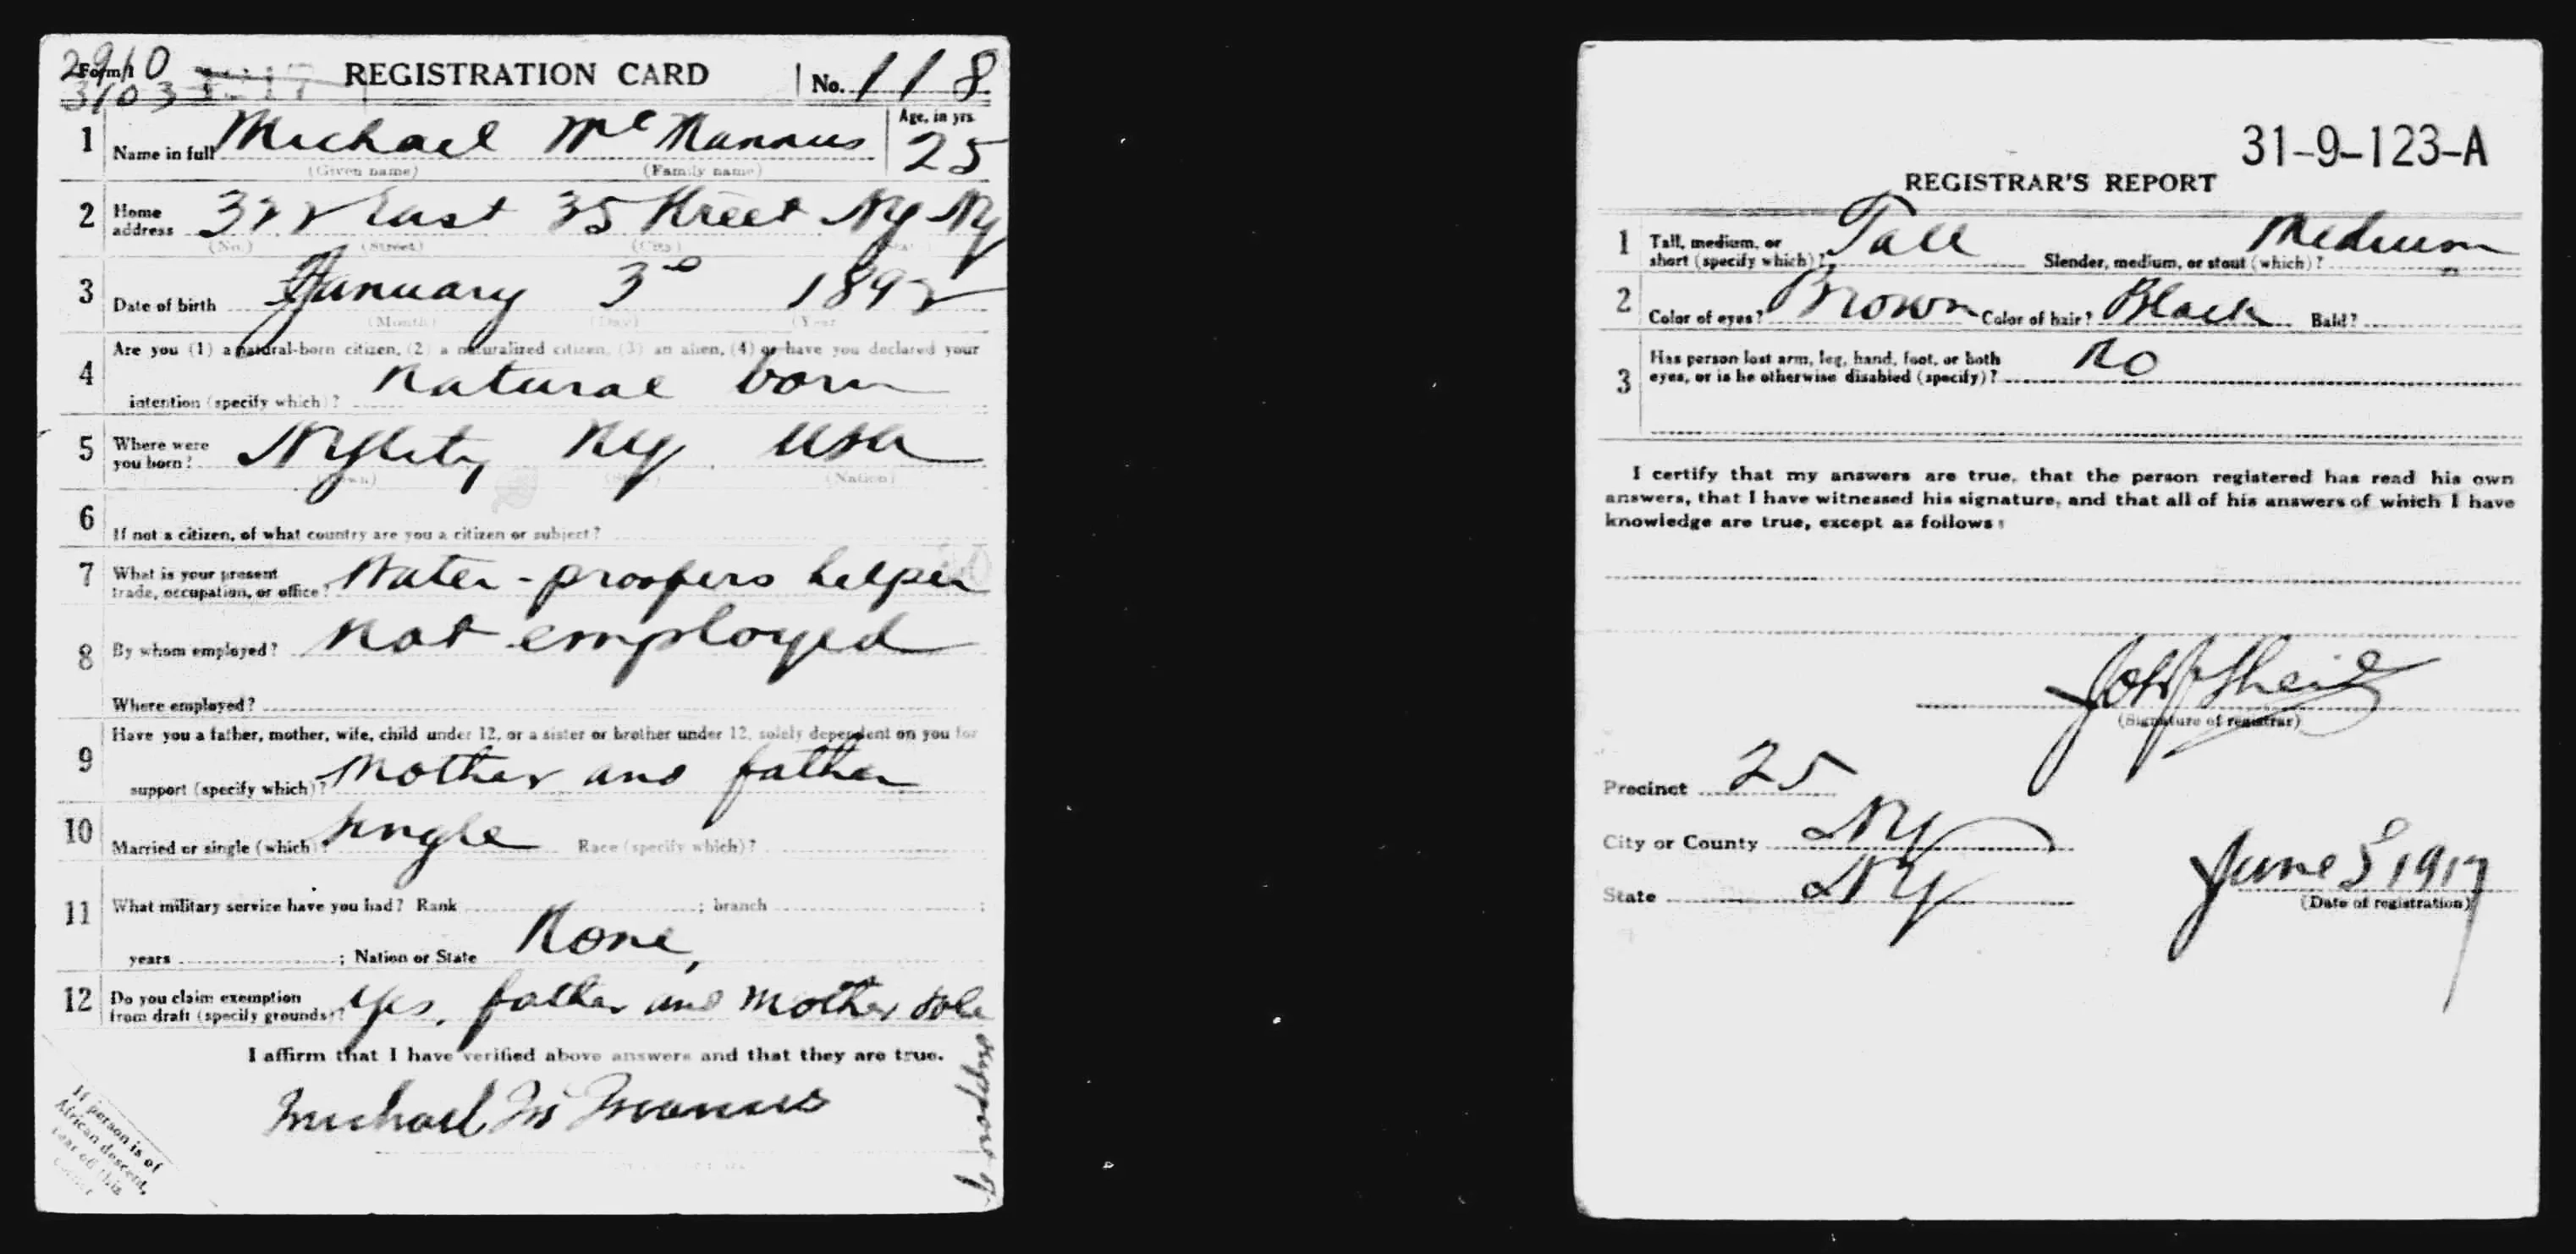 2910
Form 1 REGISTRATION CARD No. 118
3103
1 Name in full Michael McMannus Age, in yrs. 25
(Given name) (Family name)
2 Home address 322 East 35 Street NY NY
(No.) (Street) (City) (State)
3 Date of birth January 3rd 1892
(Month) (Day) (Year)
4 Are you (1) a natural-born citizen, (2) a naturalized citizen, (3) an alien, (4) or have you declared your
intention (specify which)? Natural born
5 Where were you born? NYCity NY USA
(Town) (State) (Nation)
6 If not a citizen, of what country are you a citizen or subject?
7 What is your present trade, occupation, or office? Water-proofers helper
8 By whom employed? Not employed
Where employed?
9 Have you a father, mother, wife, child under 12, or a sister or brother under 12, solely dependent on you for
support (specify which)? Mother and father
10 Married or single (which)? Single Race (specify which)?
11 What military service have you had? Rank ; branch ;
years ; Nation or State None,
12 Do you claim exemption from draft (specify grounds)? Yes, father and Mother sole
support of
I affirm that I have verified above answers and that they are true.
Michael Mc Manus
If person is of
African descent,
tear off this
corner
31-9-123-A
REGISTRAR'S REPORT
1 Tall, medium, or short (specify which)? Tall Slender, medium, or stout (which)? Medium
2 Color of eyes? Brown Color of hair? Black Bald?
3 Has person lost arm, leg, hand, foot, or both
eyes, or is he otherwise disabled (specify)? No
I certify that my answers are true, that the person registered has read his own
answers, that I have witnessed his signature, and that all of his answers of which I have
knowledge are true, except as follows:
(Signature of registrar)
Precinct 25
City or County NY
State NY
June 5 1917
(Date of registration)